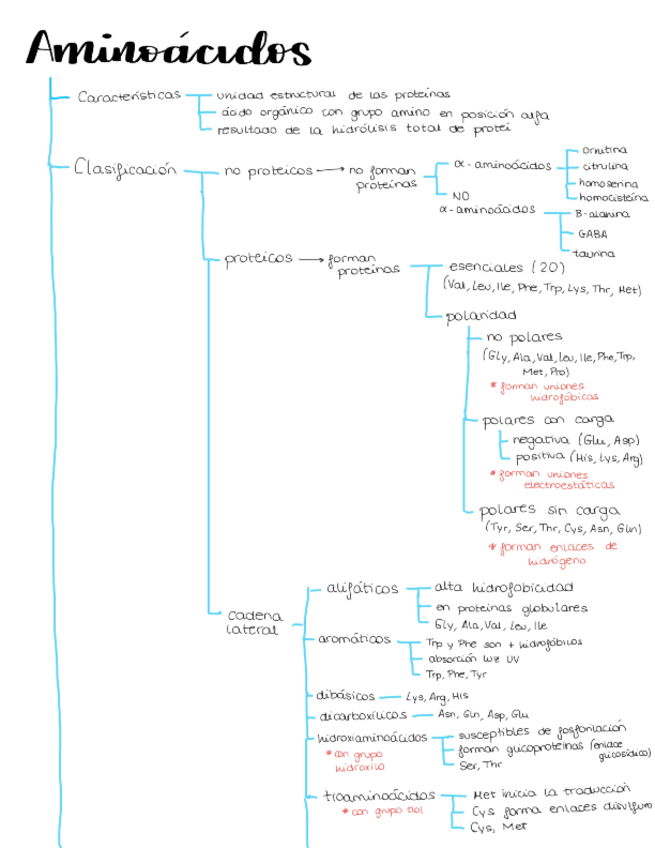 Aminoácidos
Características
unidad estructural de las proteínas
ácido orgánico con grupo amino en posición alfa
resultado de la hidrólisis total de protei
Clasificación
no proteicos → no forman
proteínas
α-aminoácidos
ornitina
citrulina
homoserina
homocisteína
NO
α-aminoácidos
B-alanina
GABA
taurina
proteicos → forman
proteínas
esenciales (20)
(Val, Leu, Ile, Phe, Trp, Lys, Thr, Met)
polaridad
no polares
(Gly, Ala, Val, Leu, Ile, Phe, Trp,
Met, Pro)
* forman uniones
hidrofóbicas
polares con carga
negativa (Glu, Asp)
positiva (His, Lys, Arg)
* forman uniones
electroestáticas
polares sin carga
(Tyr, Ser, Thr, Cys, Asn, Gln)
* forman enlaces de
hidrógeno
cadena
lateral
alifáticos
alta hidrofobicidad
en proteínas globulares
Gly, Ala, Val, Leu, Ile
aromáticos
Trp y Phe son + hidrofóbicos
absorción luz UV
Trp, Phe, Tyr
dibásicos
Lys, Arg, His
dicarboxílicos
Asn, Gln, Asp, Glu
hidroxiaminoácidos
* con grupo
hidroxilo
susceptibles de fosforilación
forman glicoproteínas (enlace
glicosídico)
Ser, Thr
tioaminoácidos
* con grupo tiol
Met inicia la traducción
Cys forma enlaces disulfuro
Cys, Met